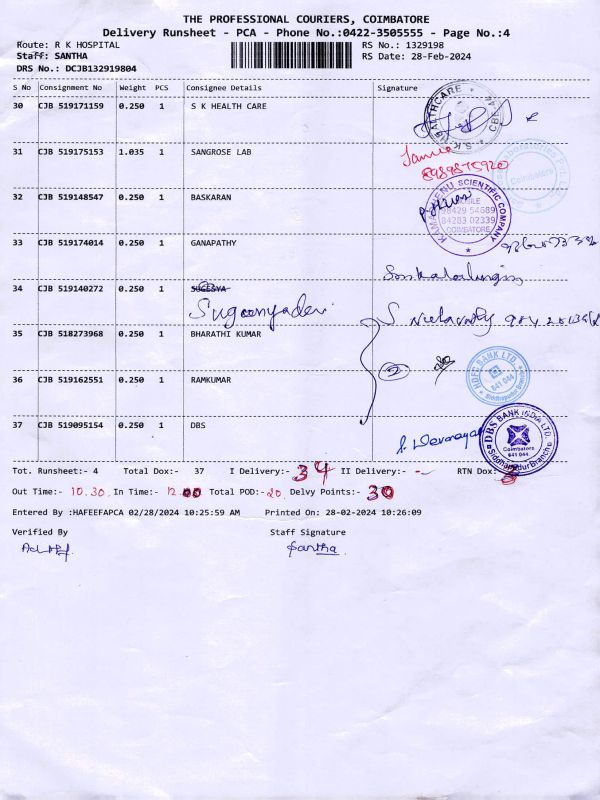 THE PROFESSIONAL COURIERS, COIMBATORE
Delivery Runsheet - PCA - Phone No.:0422-3505555 - Page No.:4
Route: R K HOSPITAL RS No.: 1329198
Staff: SANTHA RS Date: 28-Feb-2024
DRS No.: DCJB132919804
S No Consignment No Weight PCS Consignee Details Signature
30 CJB 519171159 0.250 1 S K HEALTH CARE
31 CJB 519175153 1.035 1 SANGROSE LAB
8989875920
Coimbatore
32 CJB 519148547 0.250 1 BASKARAN
KAMADHENU SCIENTIFIC COMPANY
MOBILE
98429 54689
84283 02339
COIMBATORE
33 CJB 519174014 0.250 1 GANAPATHY
34 CJB 519140272 0.250 1 SUGESYA
35 CJB 518273968 0.250 1 BHARATHI KUMAR
36 CJB 519162551 0.250 1 RAMKUMAR
2
HDFC BANK LTD.
641 044
Siddhapudur Branch
37 CJB 519095154 0.250 1 DBS
DBS BANK INDIA LTD.
Coimbatore
641 044
Siddhapudur Branch
Tot. Runsheet:- 4 Total Dox:- 37 I Delivery:- 34 II Delivery:- - RTN Dox:- 3
Out Time:- 10.30. In Time:- 12.00 Total POD:- 20. Delvy Points:- 30
Entered By :HAFEEFAPCA 02/28/2024 10:25:59 AM Printed On: 28-02-2024 10:26:09
Verified By Staff Signature
Santha